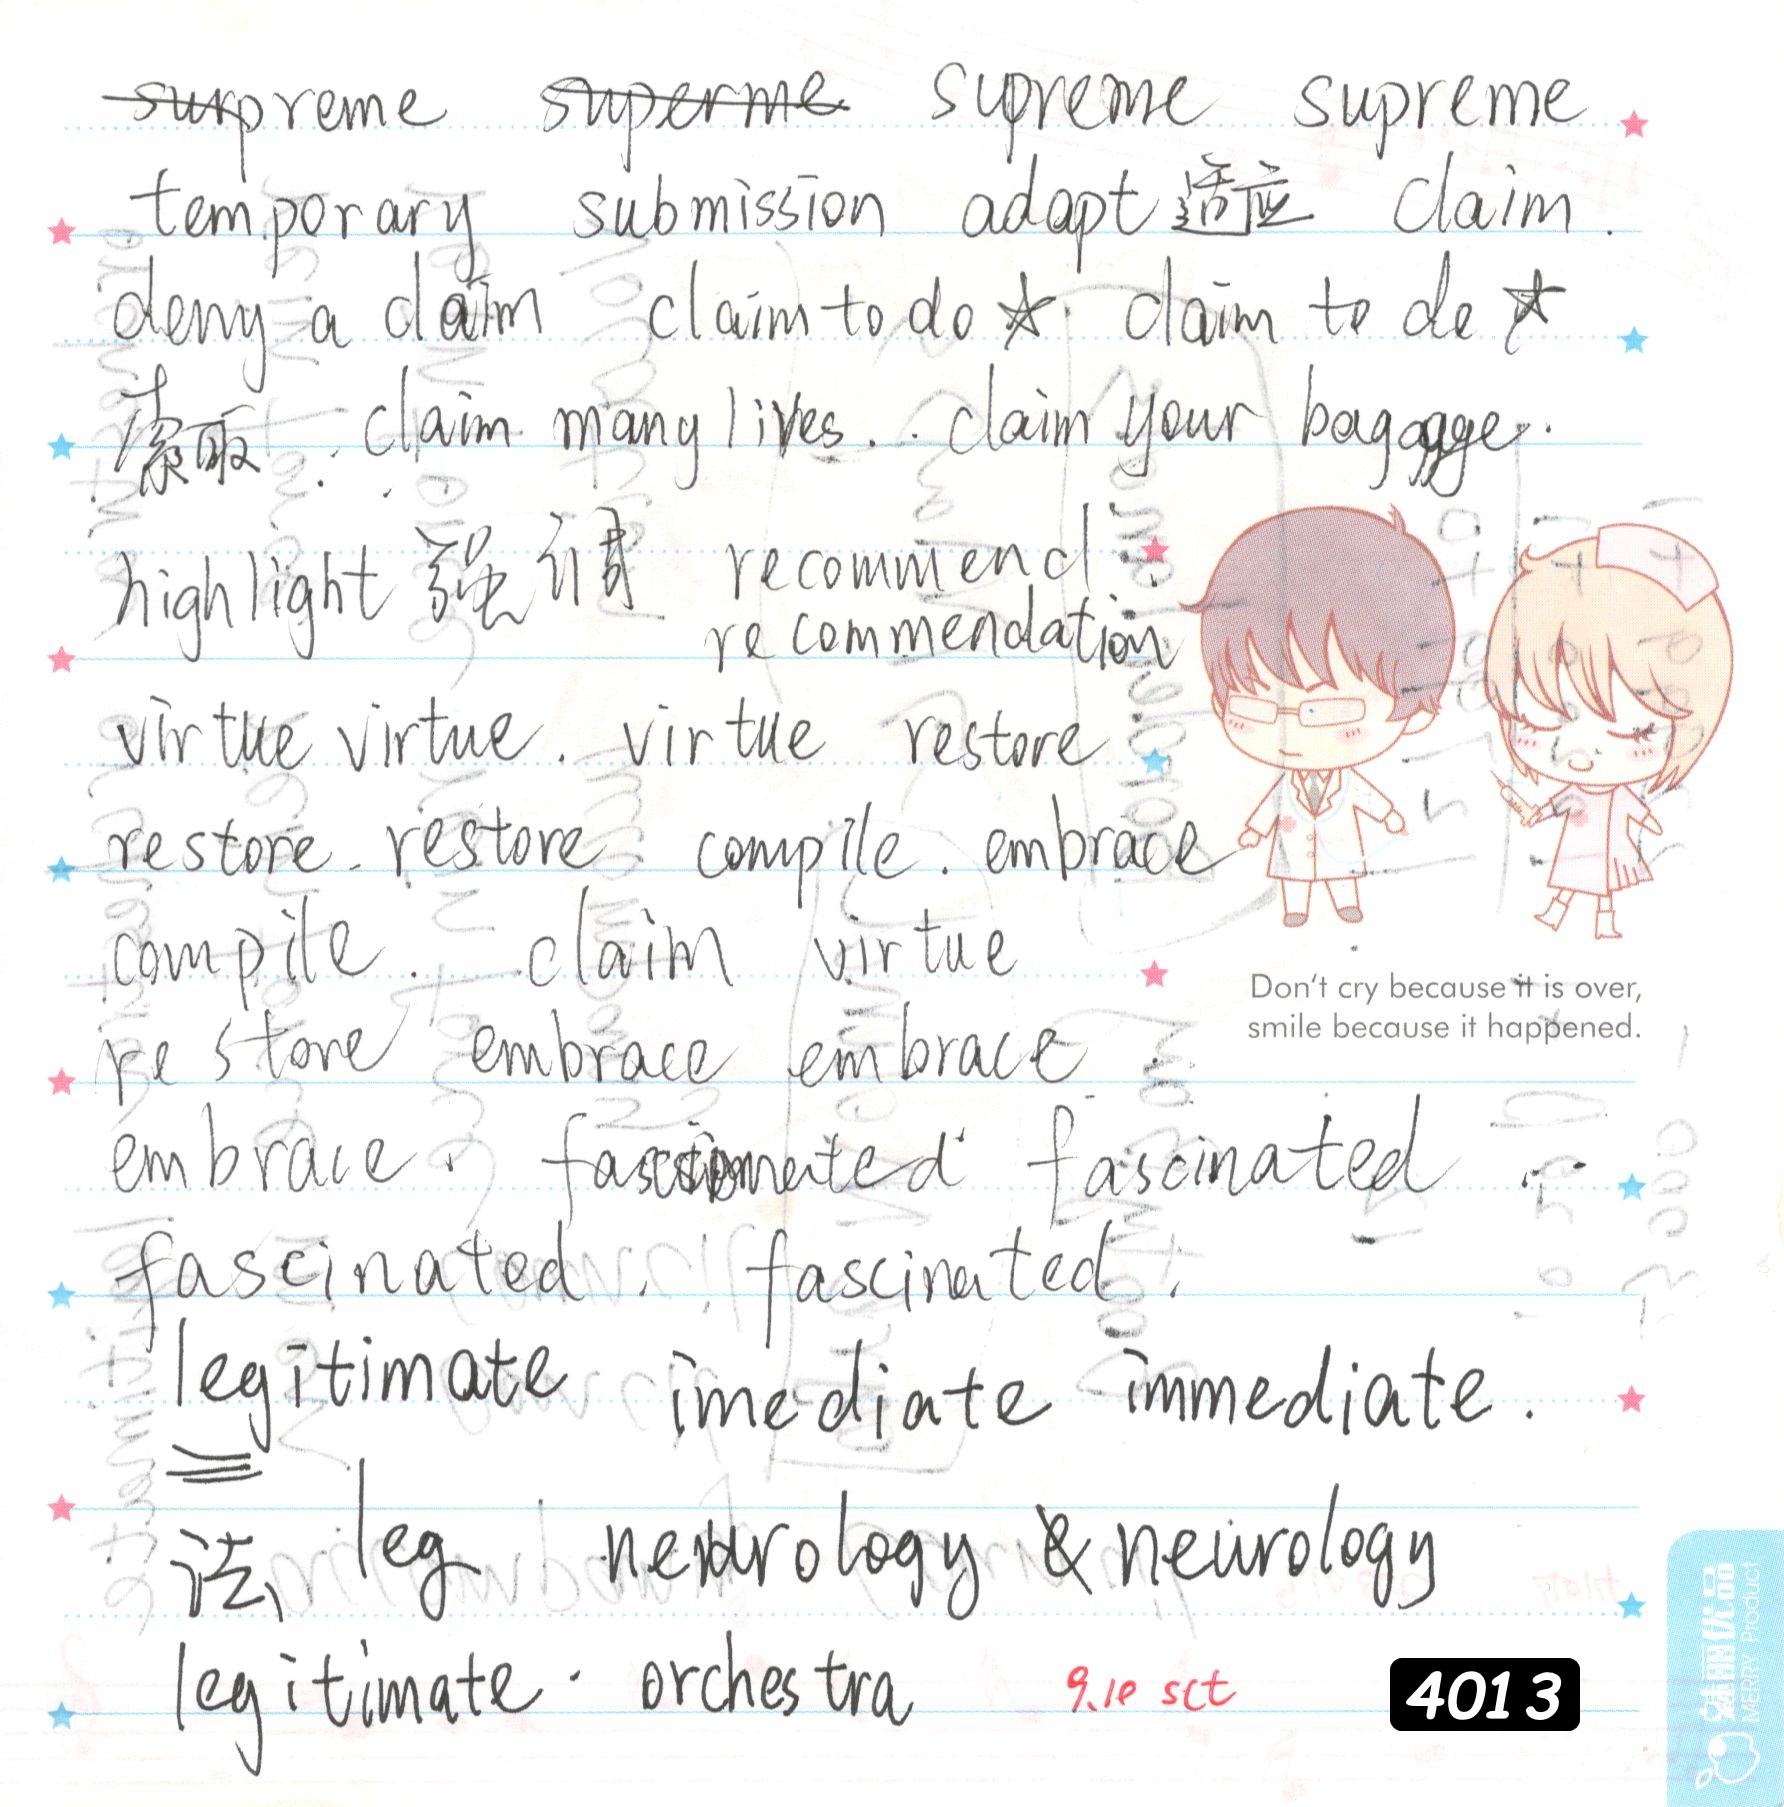 surpreme superme supreme supreme
temporary submission adapt 适应 claim.
deny a claim claim to do ☆. claim to do ☆
索取. claim many lives.. claim your baggage.
highlight 强调 recommend
recommendation
virtue virtue. virtue restore
restore. restore compile. embrace
compile. claim virtue
restore embrace embrace
embrace. fascinated fascinated..
fascinated. fascinated.
legitimate imediate immediate.
法 leg neurology & neurology
legitimate. orchestra 9.10 sct
4013
Don't cry because it is over,
smile because it happened.
MERRY Product